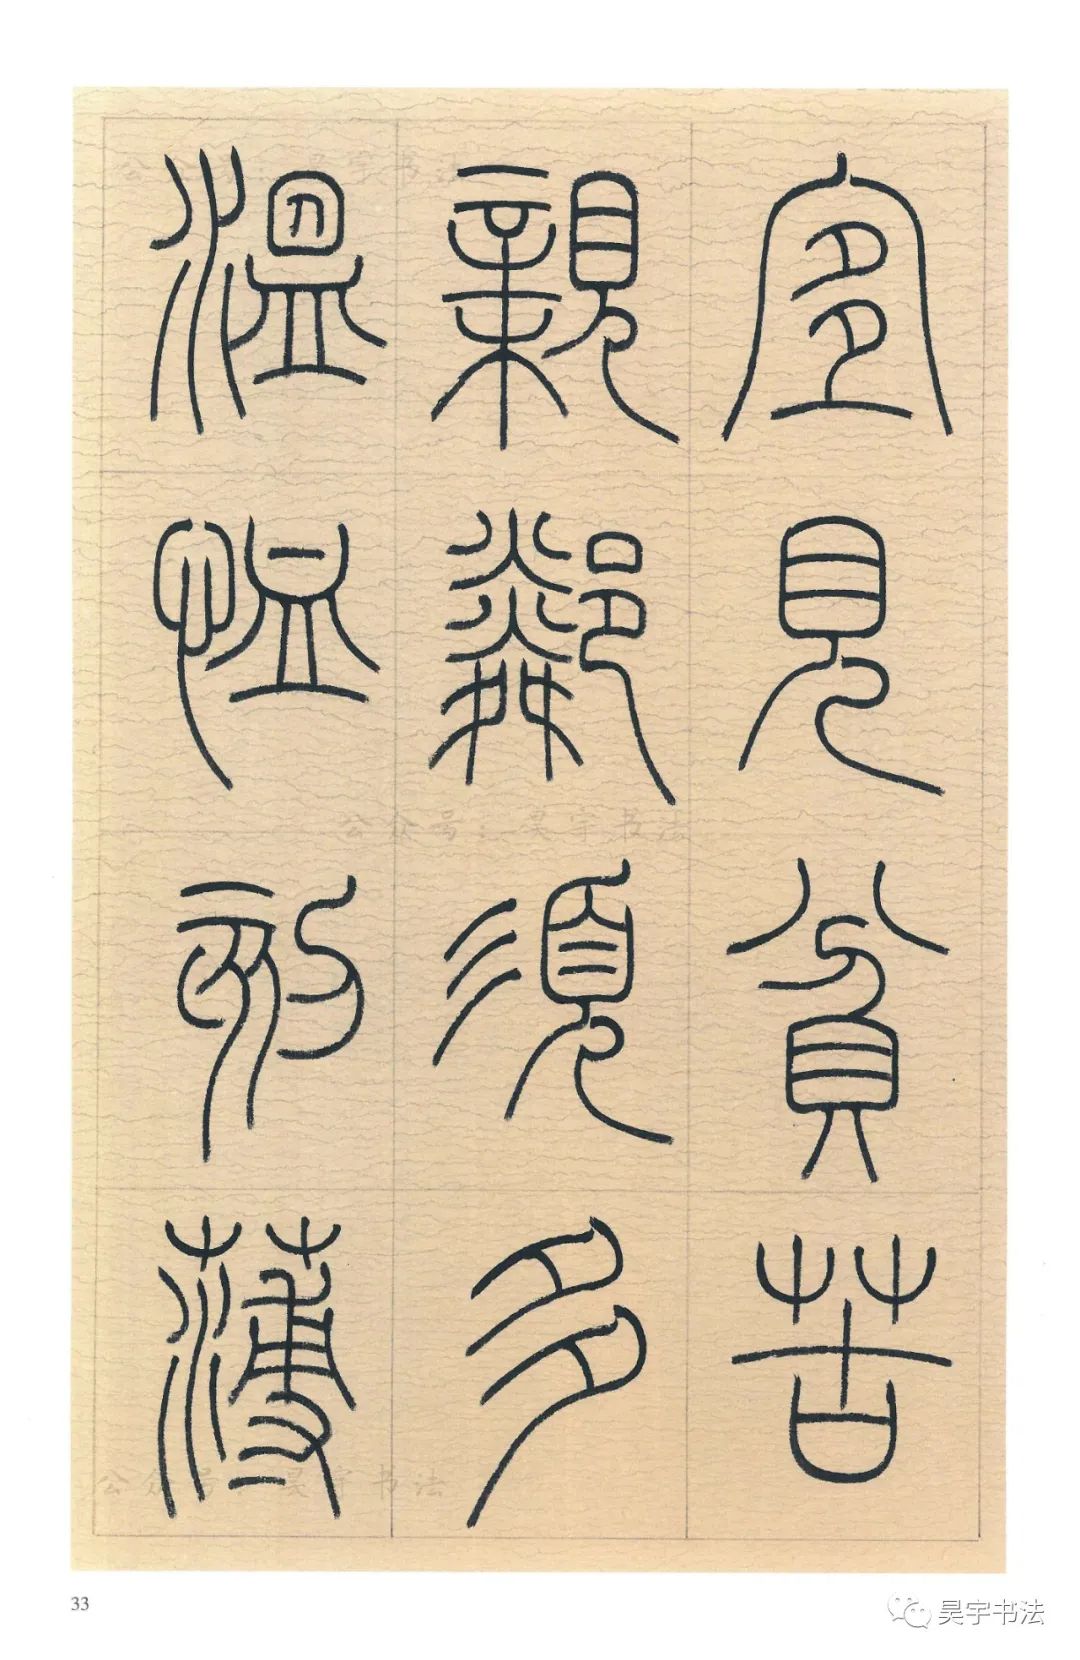 宜見貧苦
親鄰須多
溫恤刻薄
公众号：昊宇书法
公众号：昊宇书法
公众号：昊宇书法
33
昊宇书法